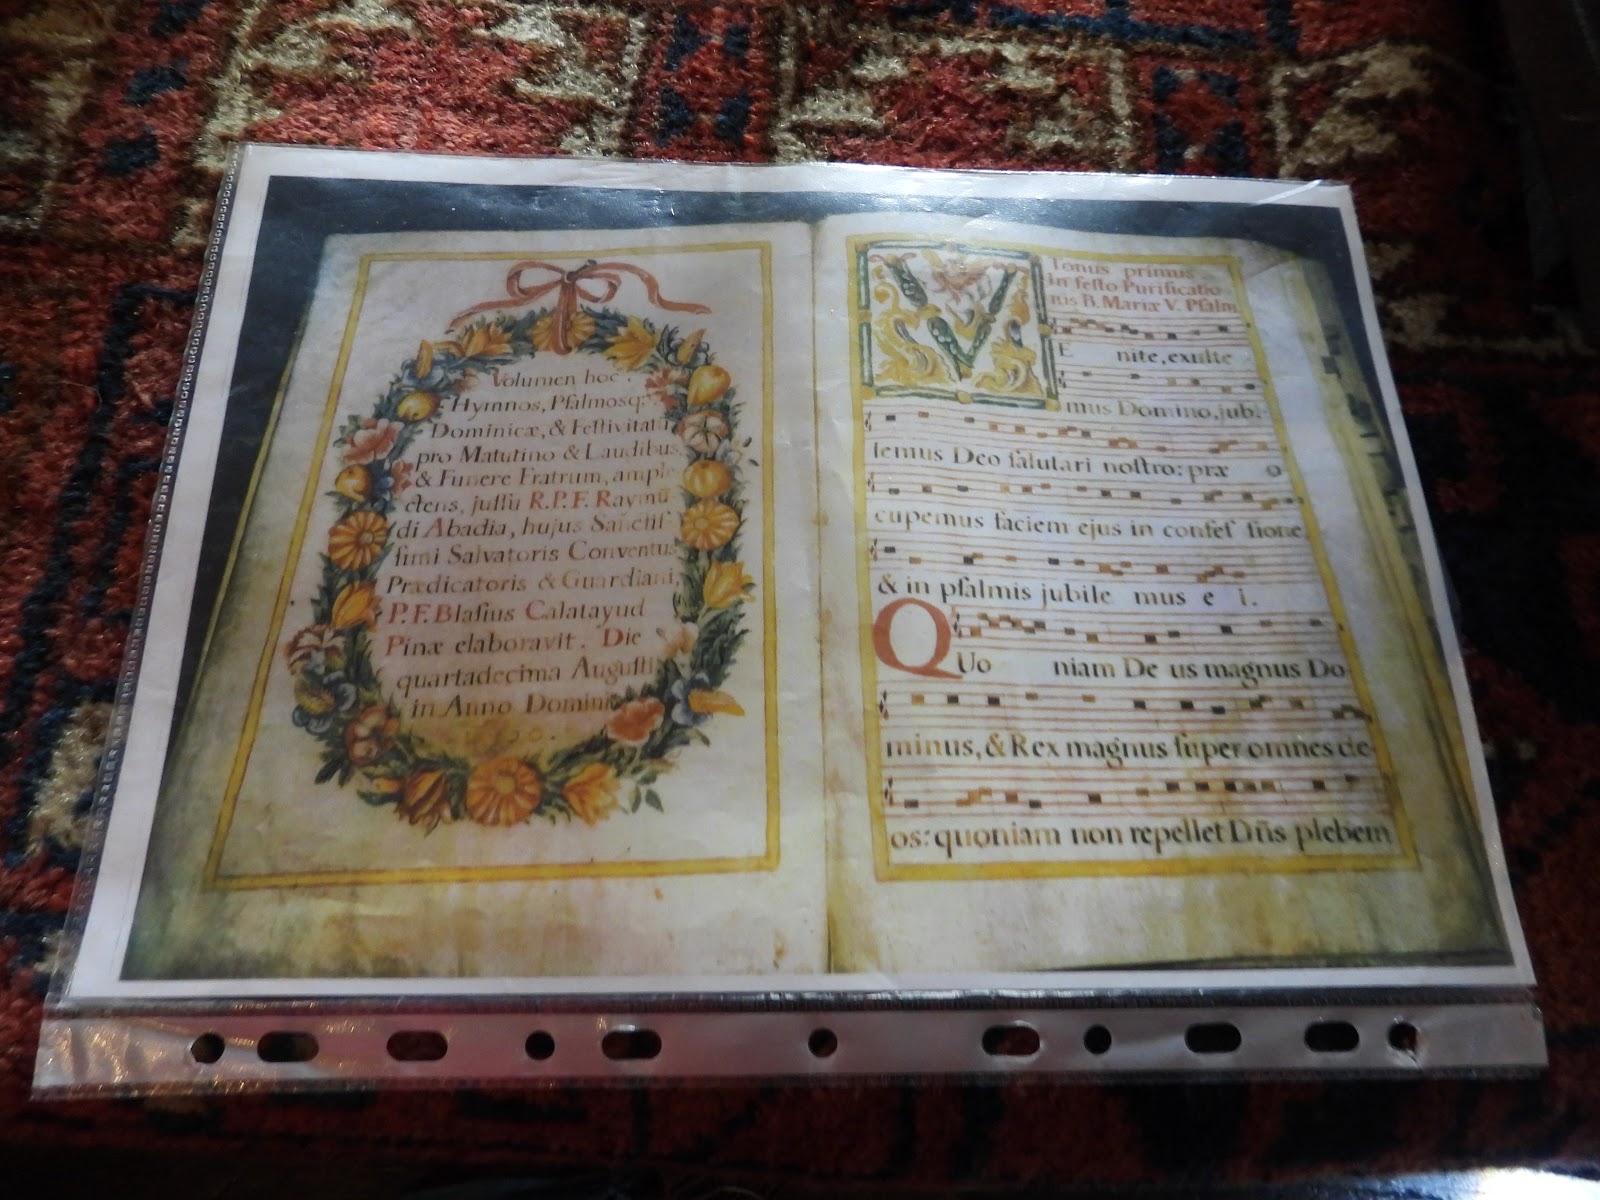 Volumen hoc
Hymnos, Psalmosq;
Dominicæ, & Festivitatũ
pro Matutino & Laudibus,
& Funere Fratrum, ample
ctens, jussu R. P. F. Raymũ-
di Abadia, hujus Sanctis-
simi Salvatoris Conventus
Prædicatoris & Guardiani,
P. F. Blasius Calatayud
Pinæ elaboravit. Die
quartadecima Augusti
in Anno Domini
Tonus primus
In festo Purificatio
nis B. Mariæ V. Psalm
VE nite, exulte
mus Domino, jubi-
lemus Deo salutari nostro: præ o
cupemus faciem ejus in confes sione,
& in psalmis jubile mus e i.
QUo niam De us magnus Do
minus, & Rex magnus super omnes de-
os: quoniam non repellet Dñs plebem